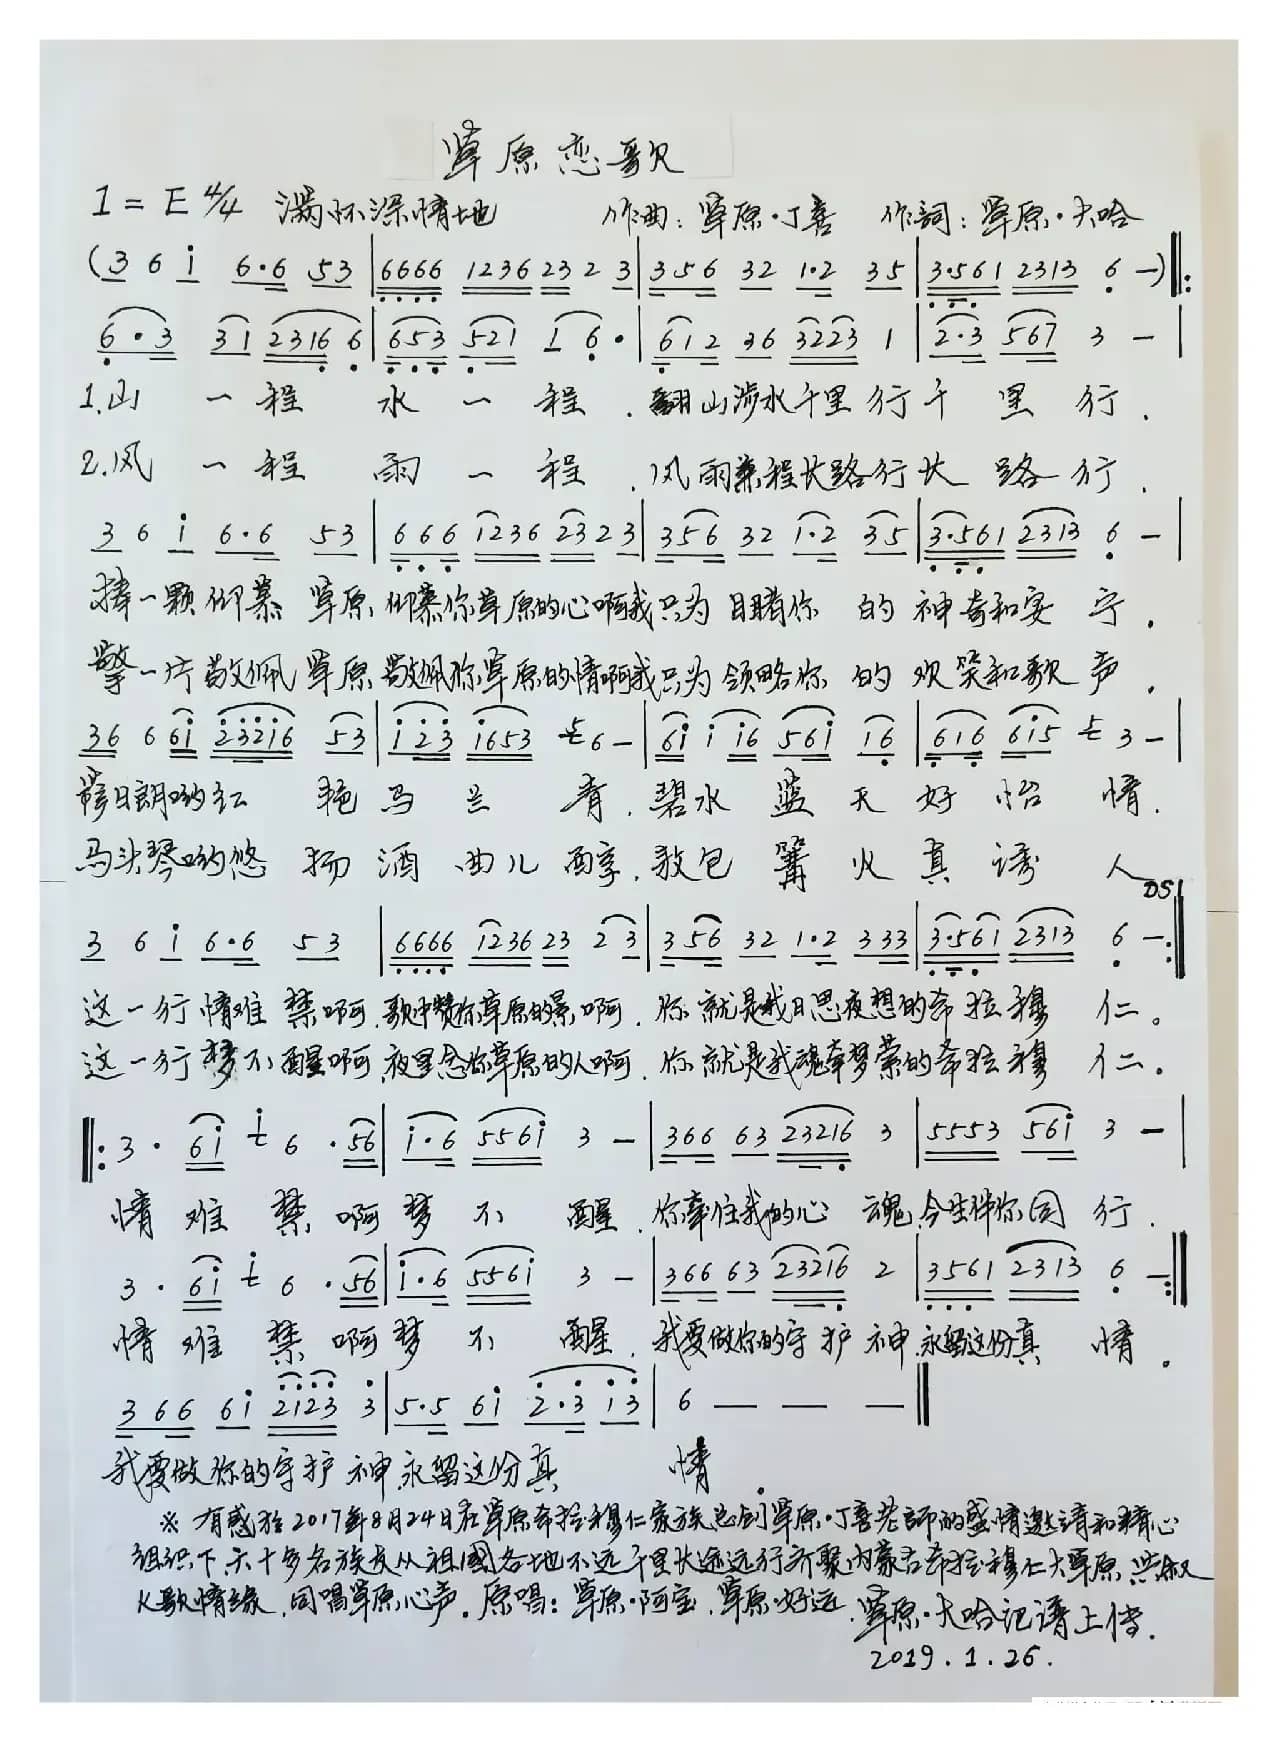 草原恋歌
1=E 4/4 满怀深情地 作曲：草原·丁喜 作詞：草原·大哈
(3 6 i 6·6 53 | 6666 1236 23 2 3 | 356 32 1·2 35 | 3·561 2313 6 —) ‖:
6·3 31 2316 6 | 653 521 1 6· | 612 36 3223 1 | 2·3 567 3 — |
1.山一程水一程.翻山涉水千里行千里行.
2.风一程雨一程.风雨兼程长路行长路行.
3 6 i 6·6 53 | 666 1236 23 2 3 | 356 32 1·2 35 | 3·561 2313 6 — |
捧一颗仰慕草原.仰慕你草原的心啊我只为目睹你的神奇和安宁.
擎一片敬佩草原.敬佩你草原的情啊我只为领略你的欢笑和歌声.
36 6 6i 23216 53 | i23 i653 6 — | 6i i i6 56i i6 | 616 6i5 3 — |
日朗哟红艳马兰青.碧水蓝天好怡情.
马头琴哟悠扬酒曲儿醇.敖包篝火真诱人
DS1
3 6 i 6·6 53 | 6666 1236 23 2 3 | 356 32 1·2 333 | 3·561 2313 6 — :‖
这一行情难禁啊.歌中赞你草原的景啊.你就是我日思夜想的希拉穆仁。
这一行梦不醒啊.夜里念你草原的人啊.你就是我魂牵梦萦的希拉穆仁。
‖: 3· 6i i 6·56 | i·6 556i 3 — | 366 63 23216 3 | 5553 56i 3 — |
情难禁啊梦不醒.你牵住我的心魂.今生伴你同行.
3· 6i i 6·56 | i·6 556i 3 — | 366 63 23216 2 | 3561 2313 6 — :‖
情难禁啊梦不醒.我要做你的守护神.永留这份真情。
366 6i 2123 3 | 5·5 6i 2·3 i3 | 6 — — — ‖
我要做你的守护神.永留这份真情.
※有感於2017年8月24日在草原希拉穆仁家族总创草原·丁喜老師的盛情邀请和精心
组织下.六十多名族友从祖國各地不远千里长途远行齐聚内蒙古希拉穆仁大草原.共叙
人歌情缘.同唱草原心声。原唱：草原·阿宝.草原·好运.草原·大哈记谱上传.
2019.1.26.